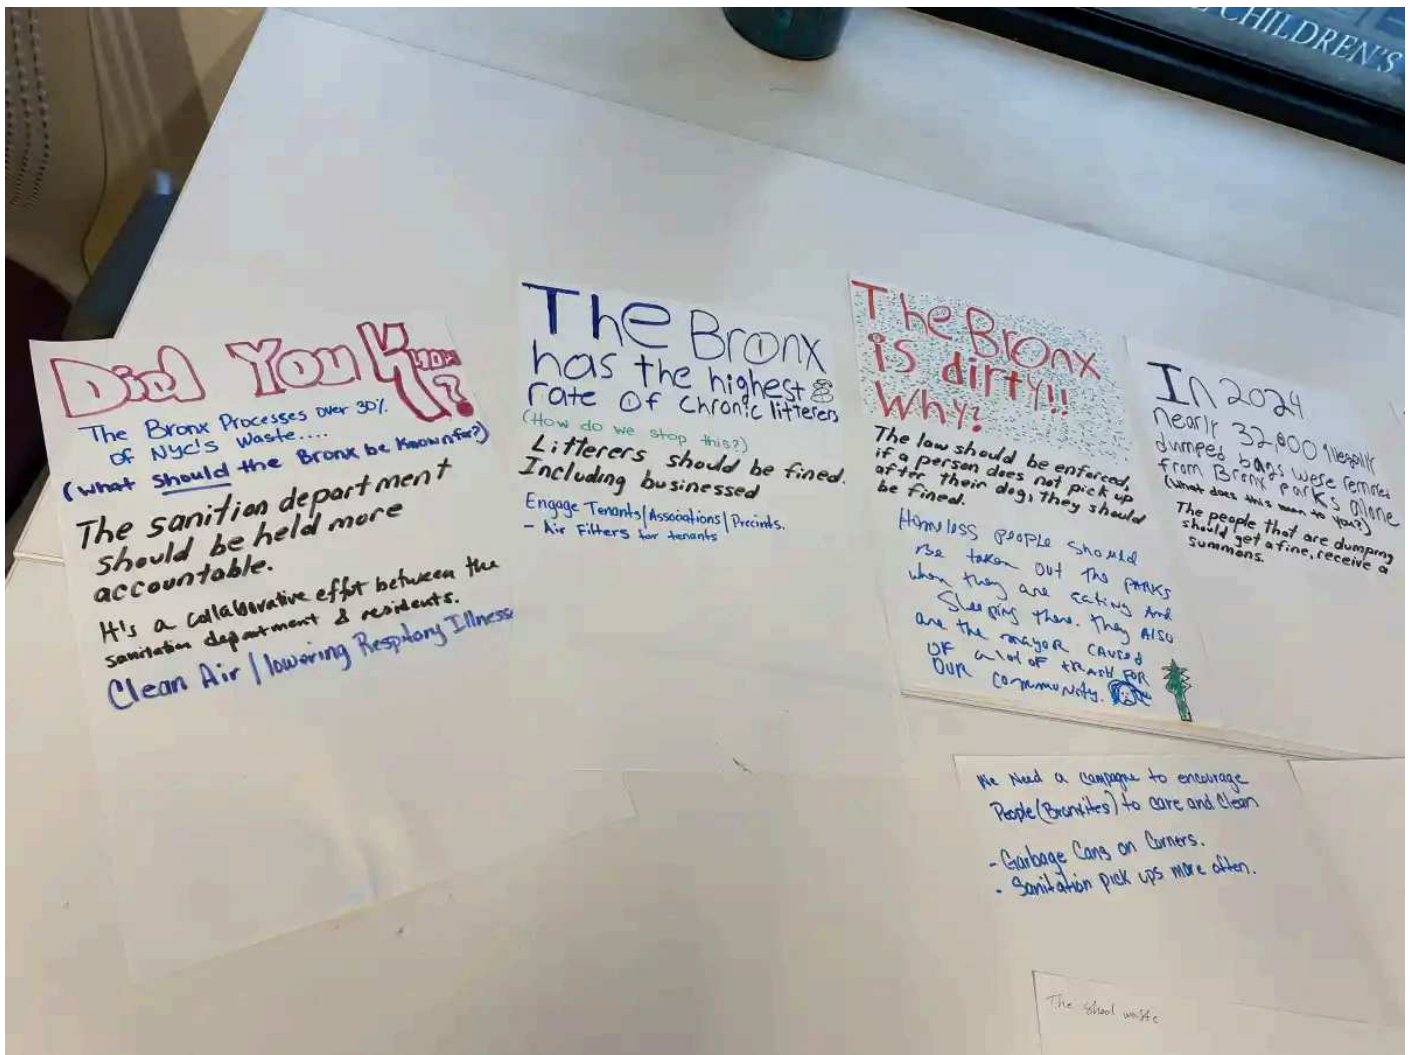 CHILDREN'S
Did You Know?
The Bronx Processes over 30%
of NYC's Waste....
(What should the Bronx be Known for?)
The sanition department
should be held more
accountable.
It's a collaborative effot between the
sanitation department & residents.
Clean Air / lowering Respitory Illness
The Bronx
has the highest
rate of chronic litterers
(How do we stop this?)
Litterers should be fined.
Including businessed
Engage Tenants/Associations/Precints.
- Air Filters for tenants
The Bronx
is dirty!!
Why?
The law should be enforced,
if a person does not pick up
after their dog, they should
be fined.
Homless people should
Be taken out the PARKS
when they are eating And
Sleeping there. they Also
are the mayor caused
OF a lot of tRASH FOR
OUR community.
In 2024
nearly 32,000 illegally
dumped bags were removed
from Bronx parks alone
(What does this mean to you?)
The people that are dumping
should get a fine, receive a
summons.
We Need a campagne to encourage
People (Bronxites) to care and Clean
- Garbage Cans on Corners.
- Sanitation pick ups more often.
The shool waste